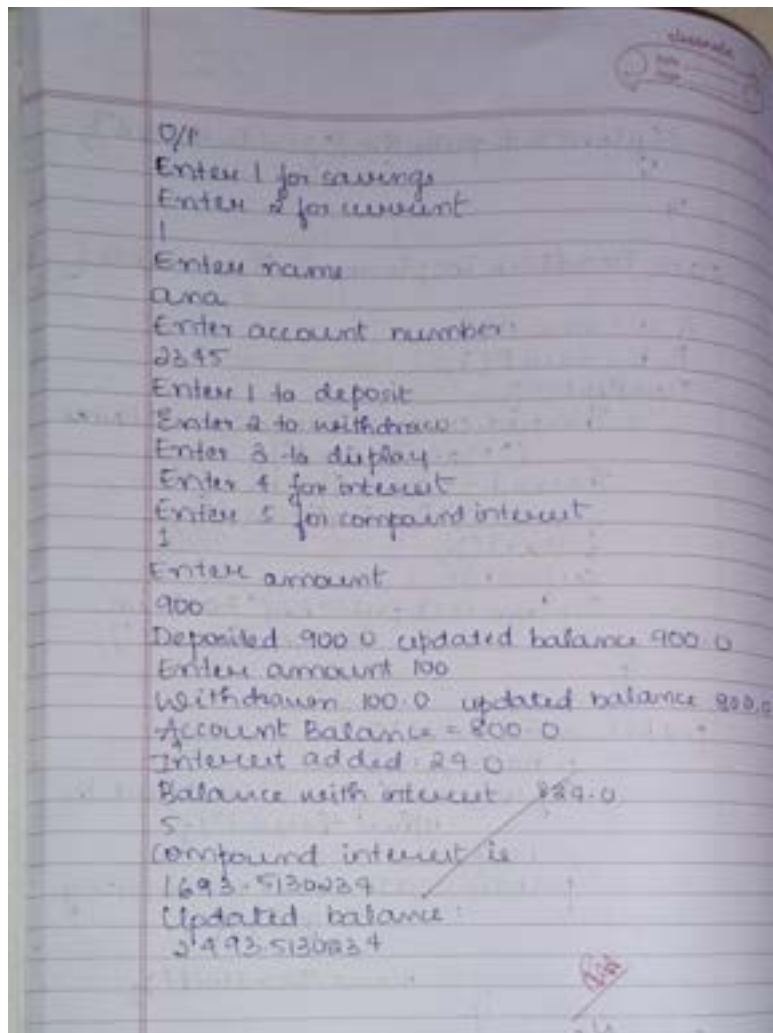 classmate
Date
Page
O/P
Enter 1 for savings
Enter 2 for current
1
Enter name
ana
Enter account number
2345
Enter 1 to deposit
Enter 2 to withdraw
Enter 3 to display
Enter 4 for interest
Enter 5 for compound interest
1
Enter amount
900
Deposited 900.0 updated balance 900.0
Enter amount 100
Withdrawn 100.0 updated balance 800.0
Account Balance = 800.0
Interest added: 24.0
Balance with interest 824.0
5
Compound interest is
1693.5130234
Updated balance:
2493.5130234